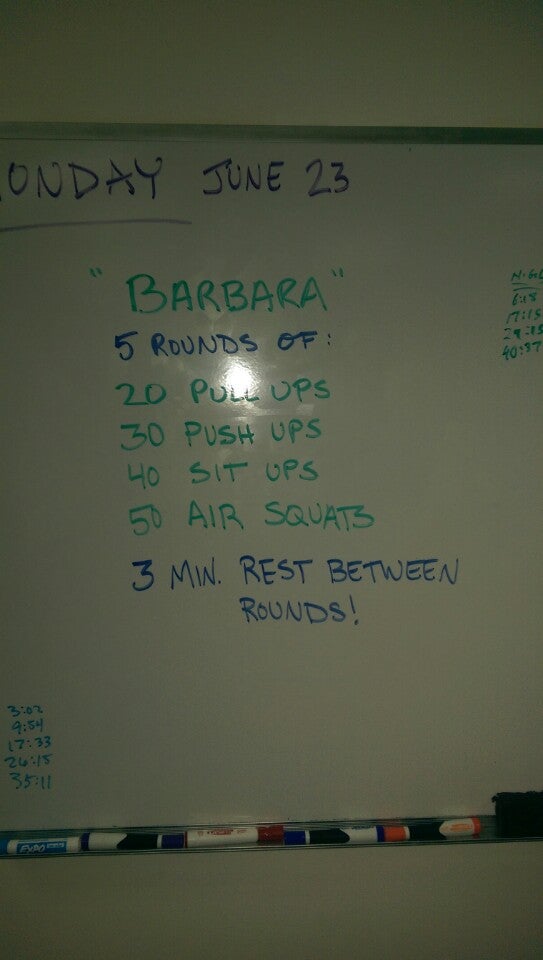 ONDAY JUNE 23
"BARBARA"
5 ROUNDS OF:
20 PULL UPS
30 PUSH UPS
40 SIT UPS
50 AIR SQUATS
3 MIN. REST BETWEEN
ROUNDS!
17:15
3:02
9:54
17:33
26:15
35:11
EXPO